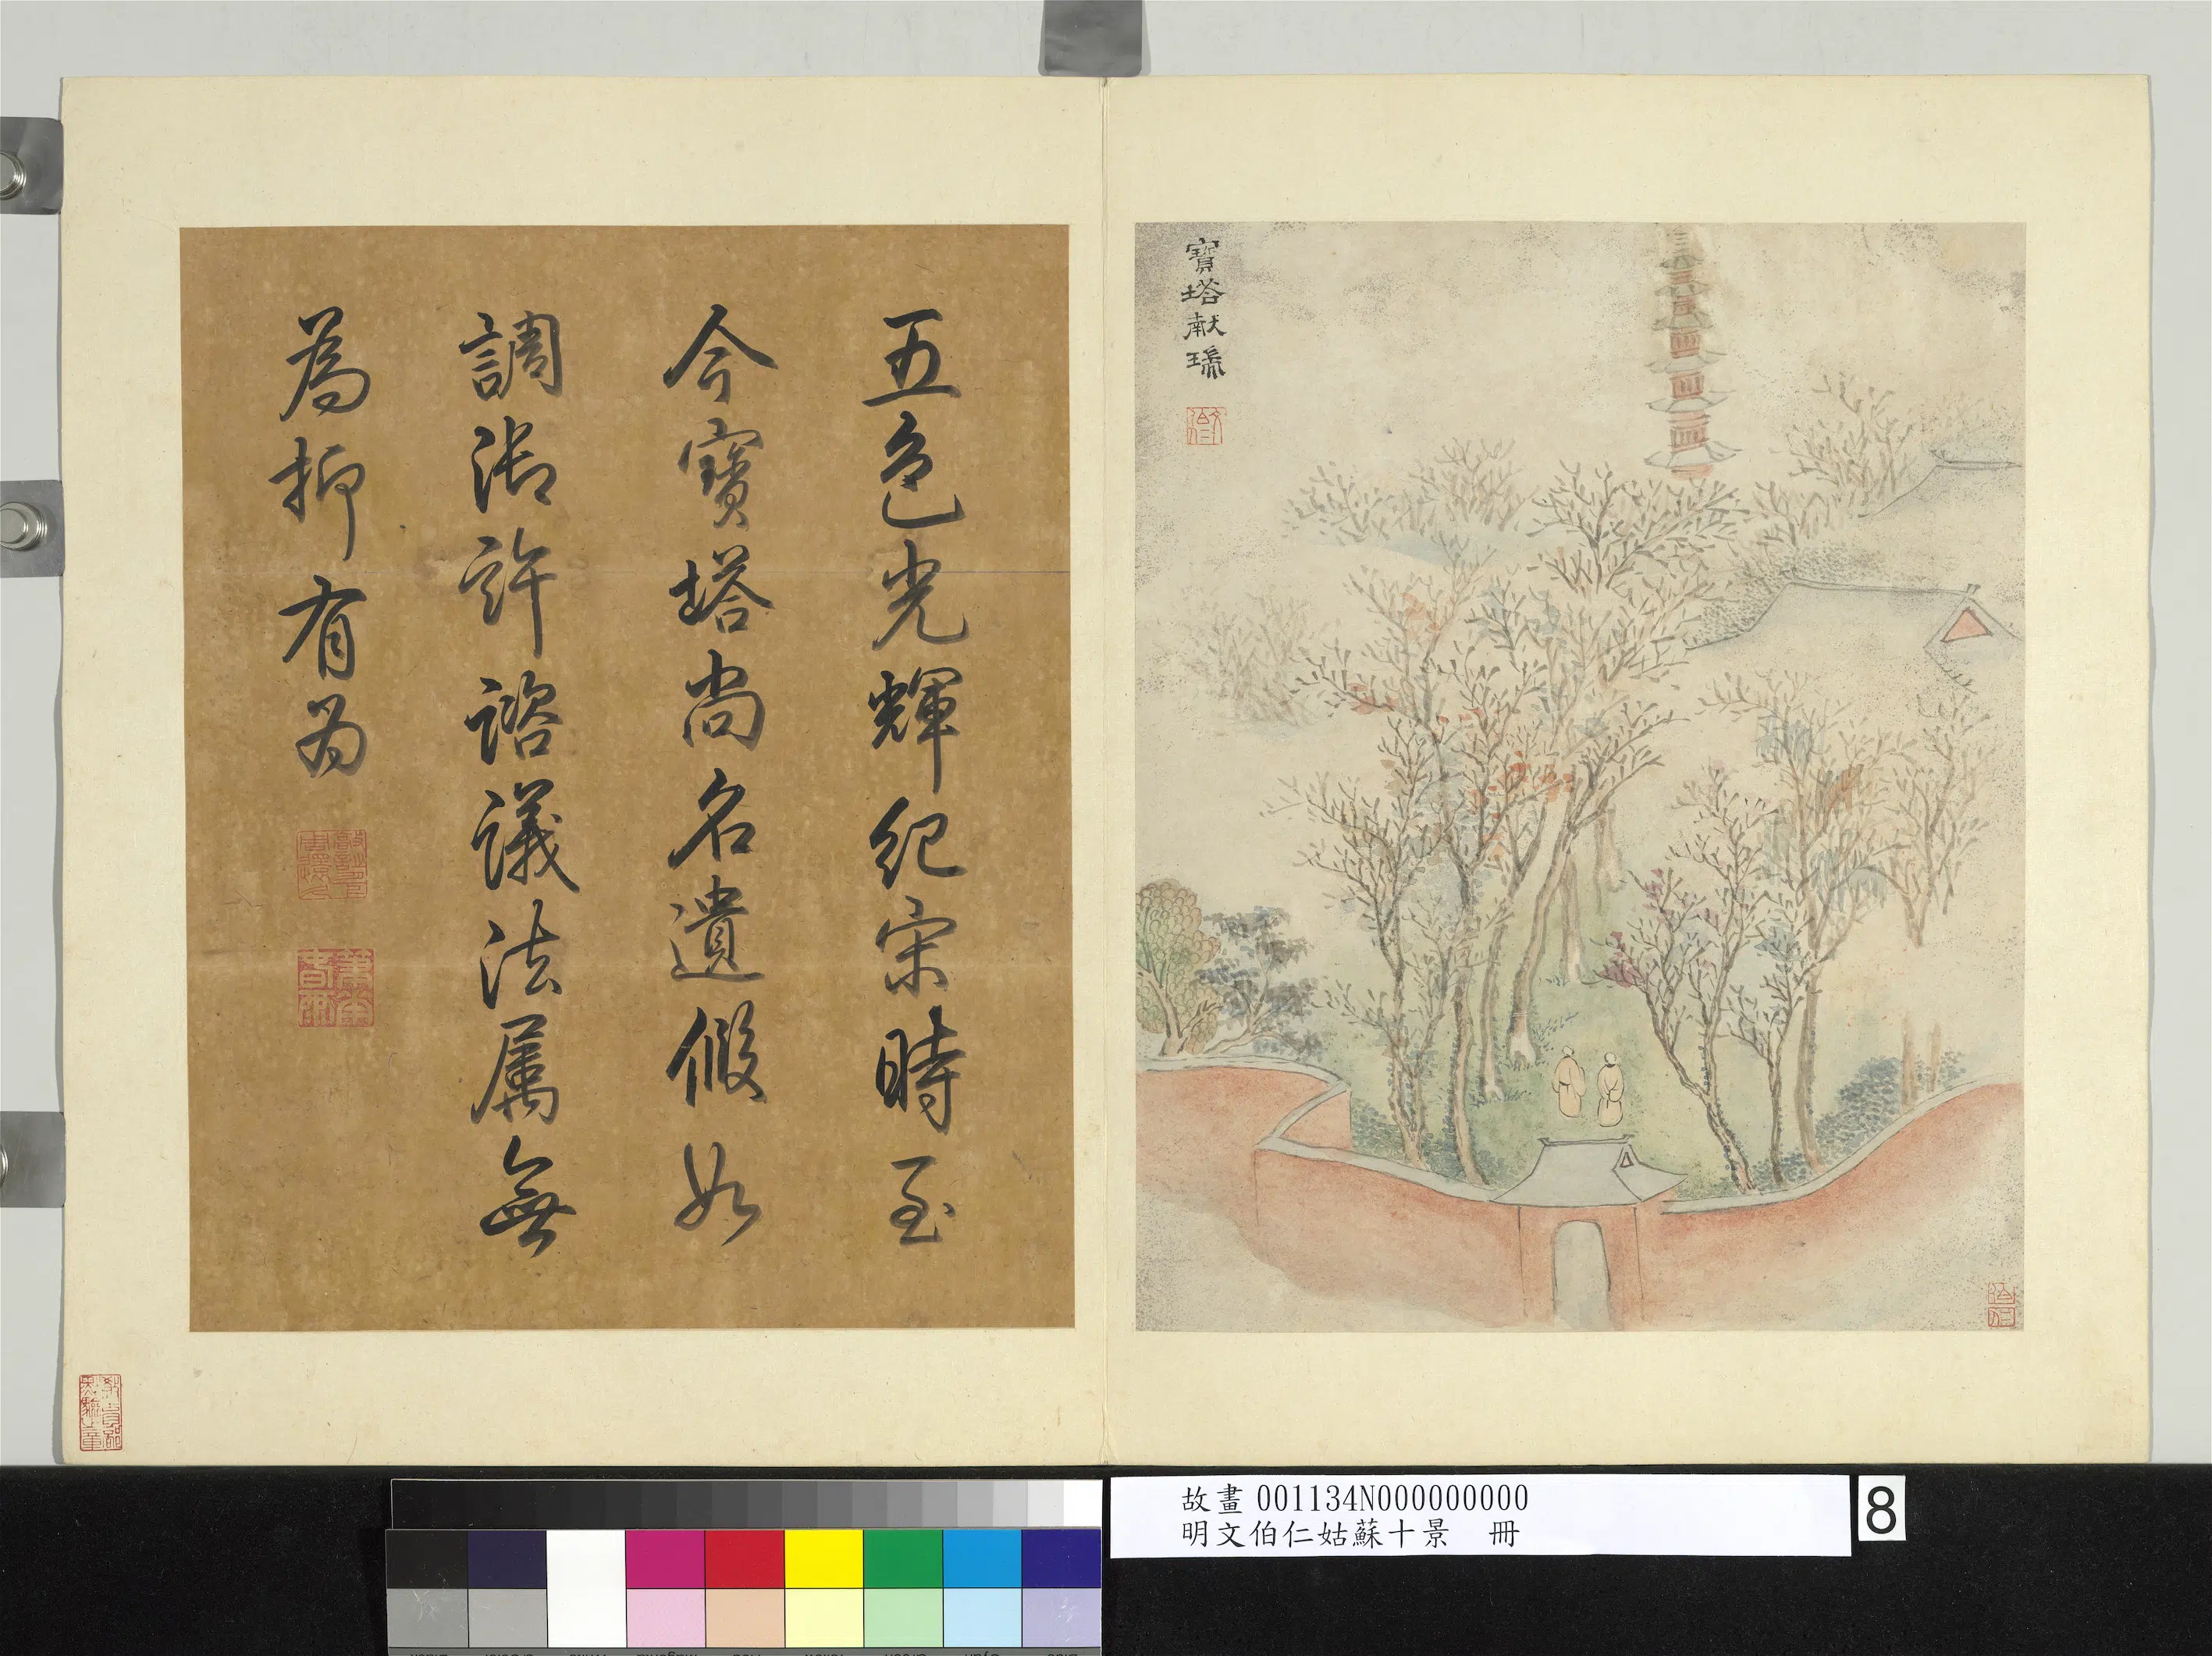 寶塔献瑞
五色光輝紀宋時至
今寶塔尚名遺假如
調御許諮議法属無
為抑有為
故畫 001134N000000000
明文伯仁姑蘇十景 冊
8